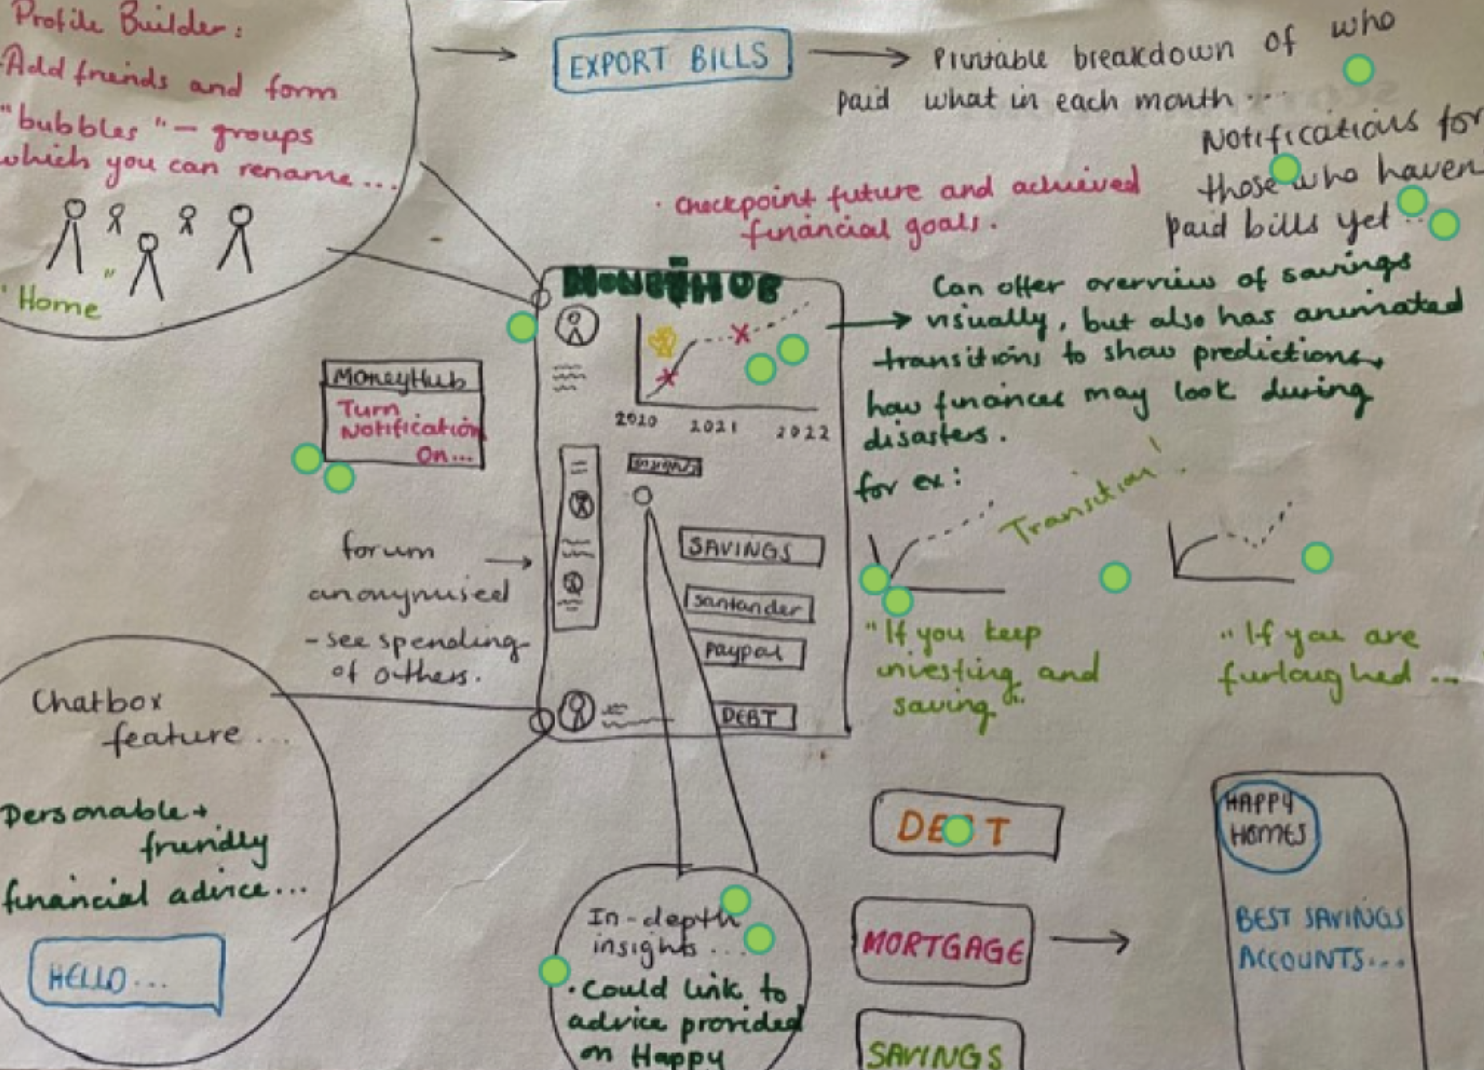 Profile Builder:
Add friends and form
"bubbles" - groups
which you can rename...
"Home"
EXPORT BILLS
Printable breakdown of who
paid what in each month...
Notifications for
those who haven
paid bills yet..
· Checkpoint future and achieved
financial goals.
MoneyHub
2020 2021 2022
insights
SAVINGS
santander
Paypal
DEBT
MoneyHub
Turn
Notification
On...
forum
anonymised
- see spending
of others.
Can offer overview of savings
visually, but also has animated
transitions to show predictions,
how finances may look during
disasters.
for ex:
Transition!
"If you keep
investing and
saving"..
"If you are
furloughed...
Chatbox
feature...
Personable +
friendly
financial advice...
HELLO...
In-depth
insights...
· Could link to
advice provided
on Happy
DEBT
MORTGAGE
SAVINGS
HAPPY
HOMES
BEST SAVINGS
ACCOUNTS...